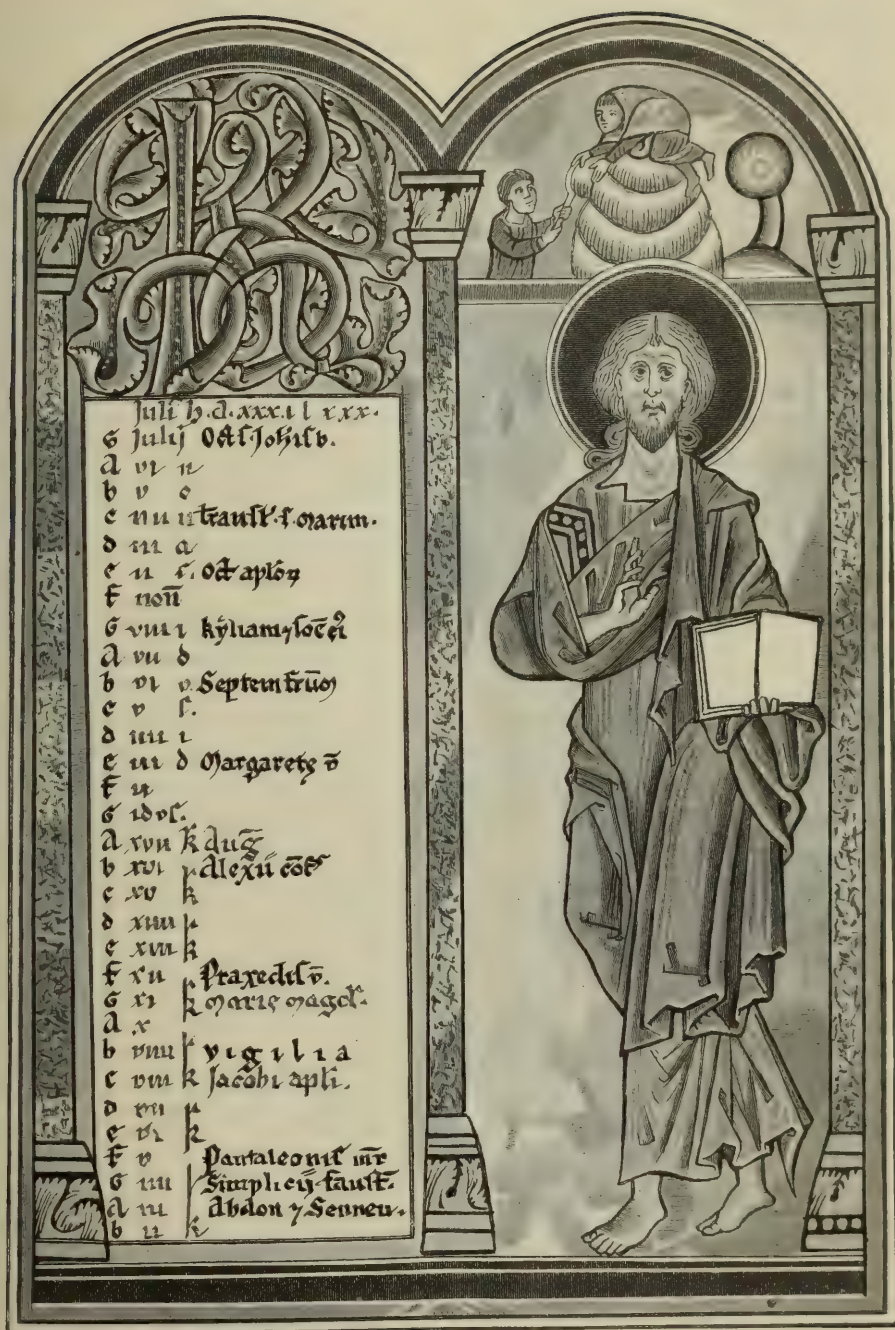 KL
Julī h. d. xxxi l xxx.
G Julij Oct̄ Johis b.
A vi n
b v o
c iiii n transl. s. Martin.
d iii a
e ii s. Oct aplōꝝ
f non̄
G viii i kyliani ⁊ socē eī
A vii d
b vi v. Septem fr̄um
c v s.
d iiii i
e iii d Margaretę v̄
f ii
G idus.
A xvii k Auḡ
b xvi k Alexii cōf
c xv k
d xiiii k
e xiii k
f xii Praxedis v̄.
G xi k Marię magdl.
A x
b viiii k vigilia
c viii k Jacobi apli.
d vii k
e vi k
f v Pantaleonis m̄r
G iiii Simplicij faust̄.
A iii Abdon ⁊ Sennen.
b ii k